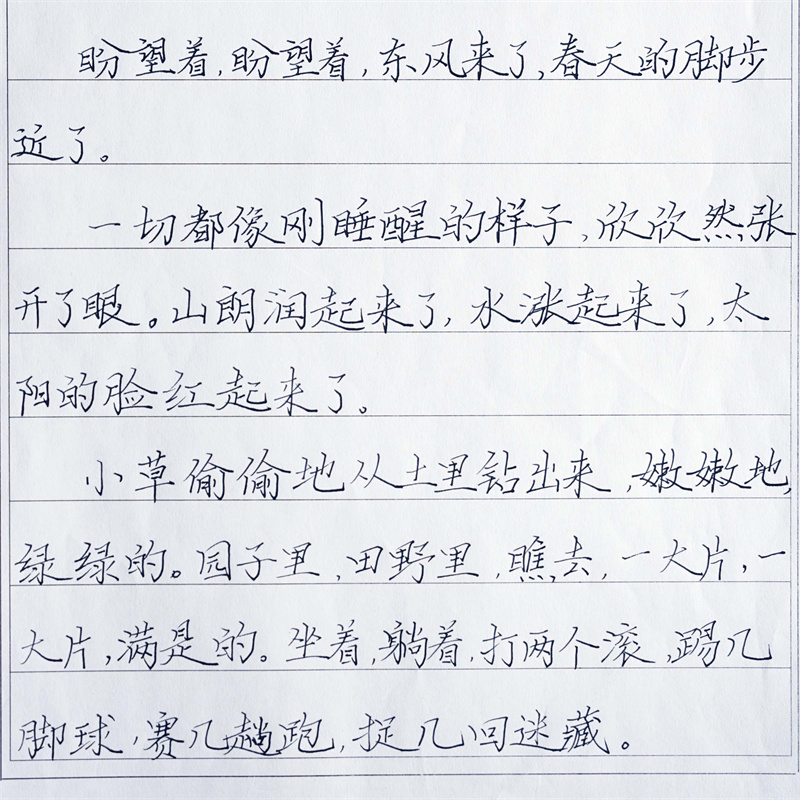 盼望着,盼望着,东风来了,春天的脚步
近了。
一切都像刚睡醒的样子,欣欣然张
开了眼。山朗润起来了,水涨起来了,太
阳的脸红起来了。
小草偷偷地从土里钻出来,嫩嫩地,
绿绿的。园子里,田野里,瞧去,一大片,一
大片,满是的。坐着,躺着,打两个滚,踢几
脚球,赛几趟跑,捉几回迷藏。